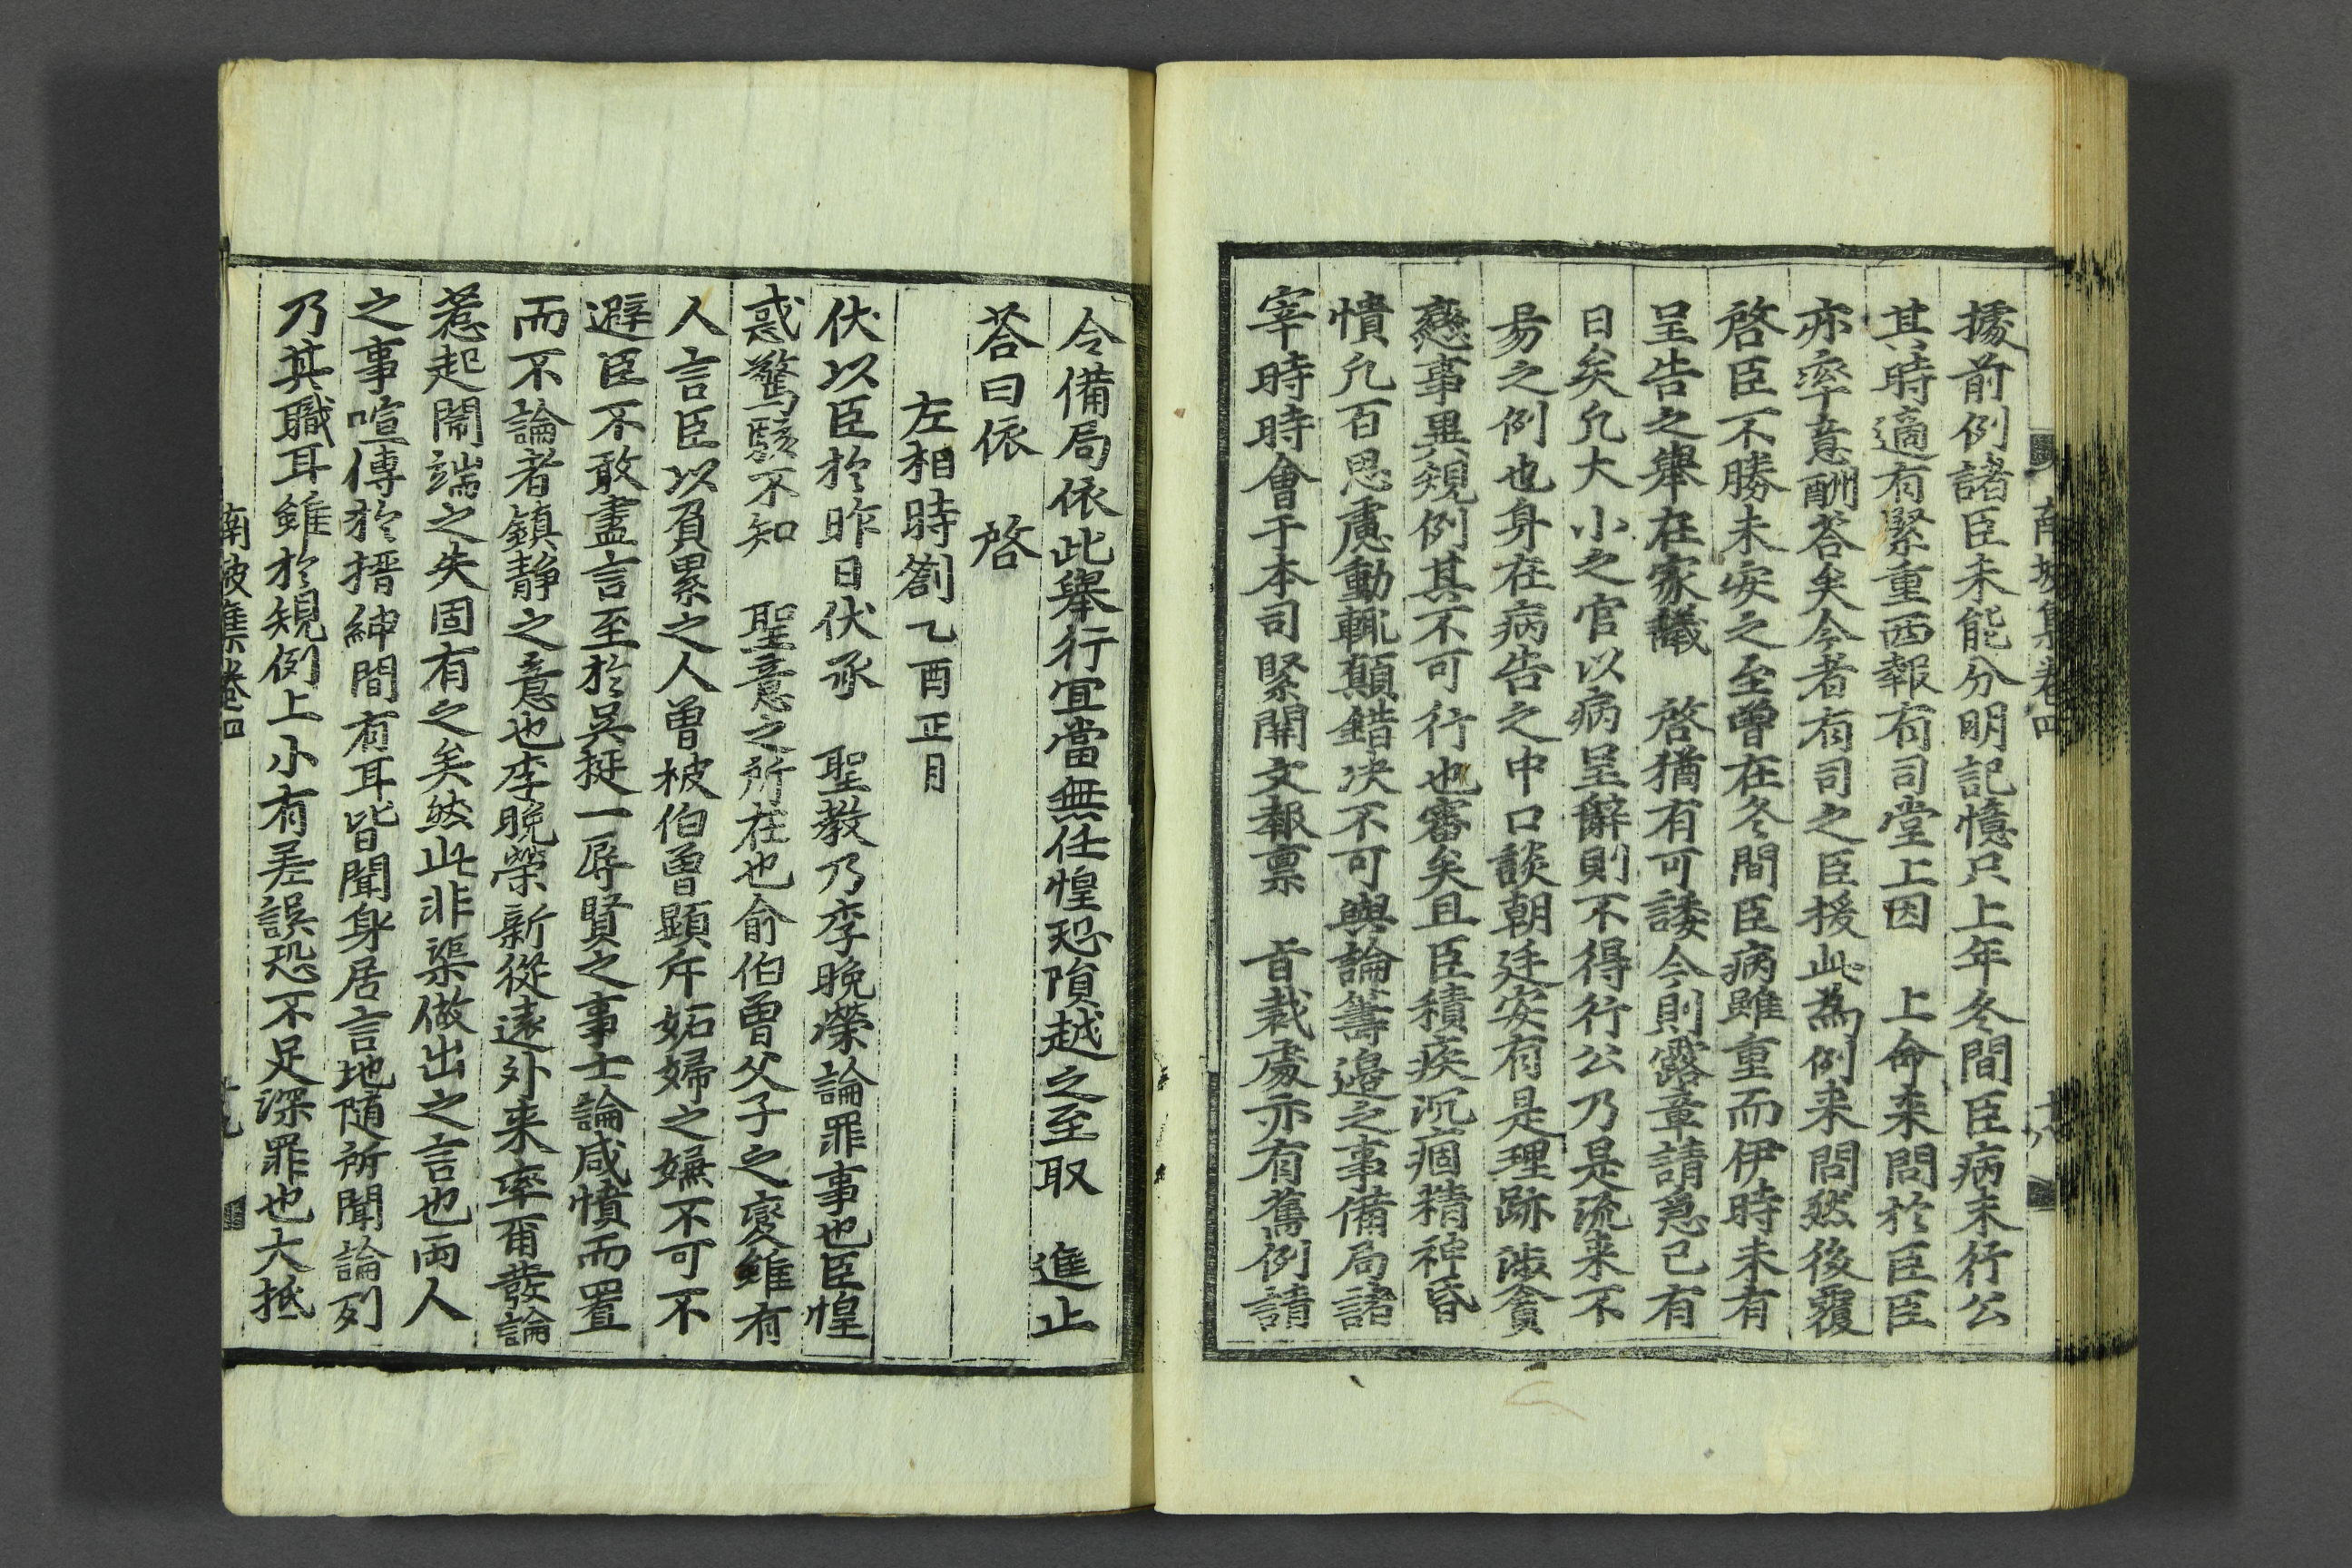 南坡集卷四
十八
據前例諸臣未能分明記憶只上年冬間臣病未行公
其時適有緊重西報有司堂上因　上命来問於臣臣
亦率意酬荅矣今者有司之臣援此為例来問然後覆
啓臣不勝未安之至曽在冬間臣病雖重而伊時未有
呈告之舉在家議　啓猶有可諉今則露章請急已有
日矣凡大小之官以病呈辭則不得行公乃是流来不
易之例也身在病告之中口談朝廷安有是理跡涉貪
戀事異規例其不可行也審矣且臣積疾沉痼精神昏
憒凡百思慮動輒顛錯决不可與論籌邉之事備局諸
宰時時會于本司緊関文報禀　旨裁處亦有舊例請
令備局依此舉行冝當無任惶恐隕越之至取　進止
荅曰依　啓
左相時劄乙酉正月
伏以臣於昨日伏承　聖教乃李晩榮論罪事也臣惶
惑驚駭不知　聖意之所在也俞伯曽父子之變雖有
人言臣以負累之人曽被伯曽顯斥妬婦之嫌不可不
避臣不敢盡言至於吳挺一辱賢之事士論咸憤而置
而不論者鎮静之意也李晩榮新從遠外来率甭發論
惹起鬧端之失固有之矣然此非渠做出之言也两人
之事喧傳於搢紳間有耳皆聞身居言地随所聞論列
乃其職耳雖於規例上小有差誤恐不足深罪也大抵
南坡集卷四
十九